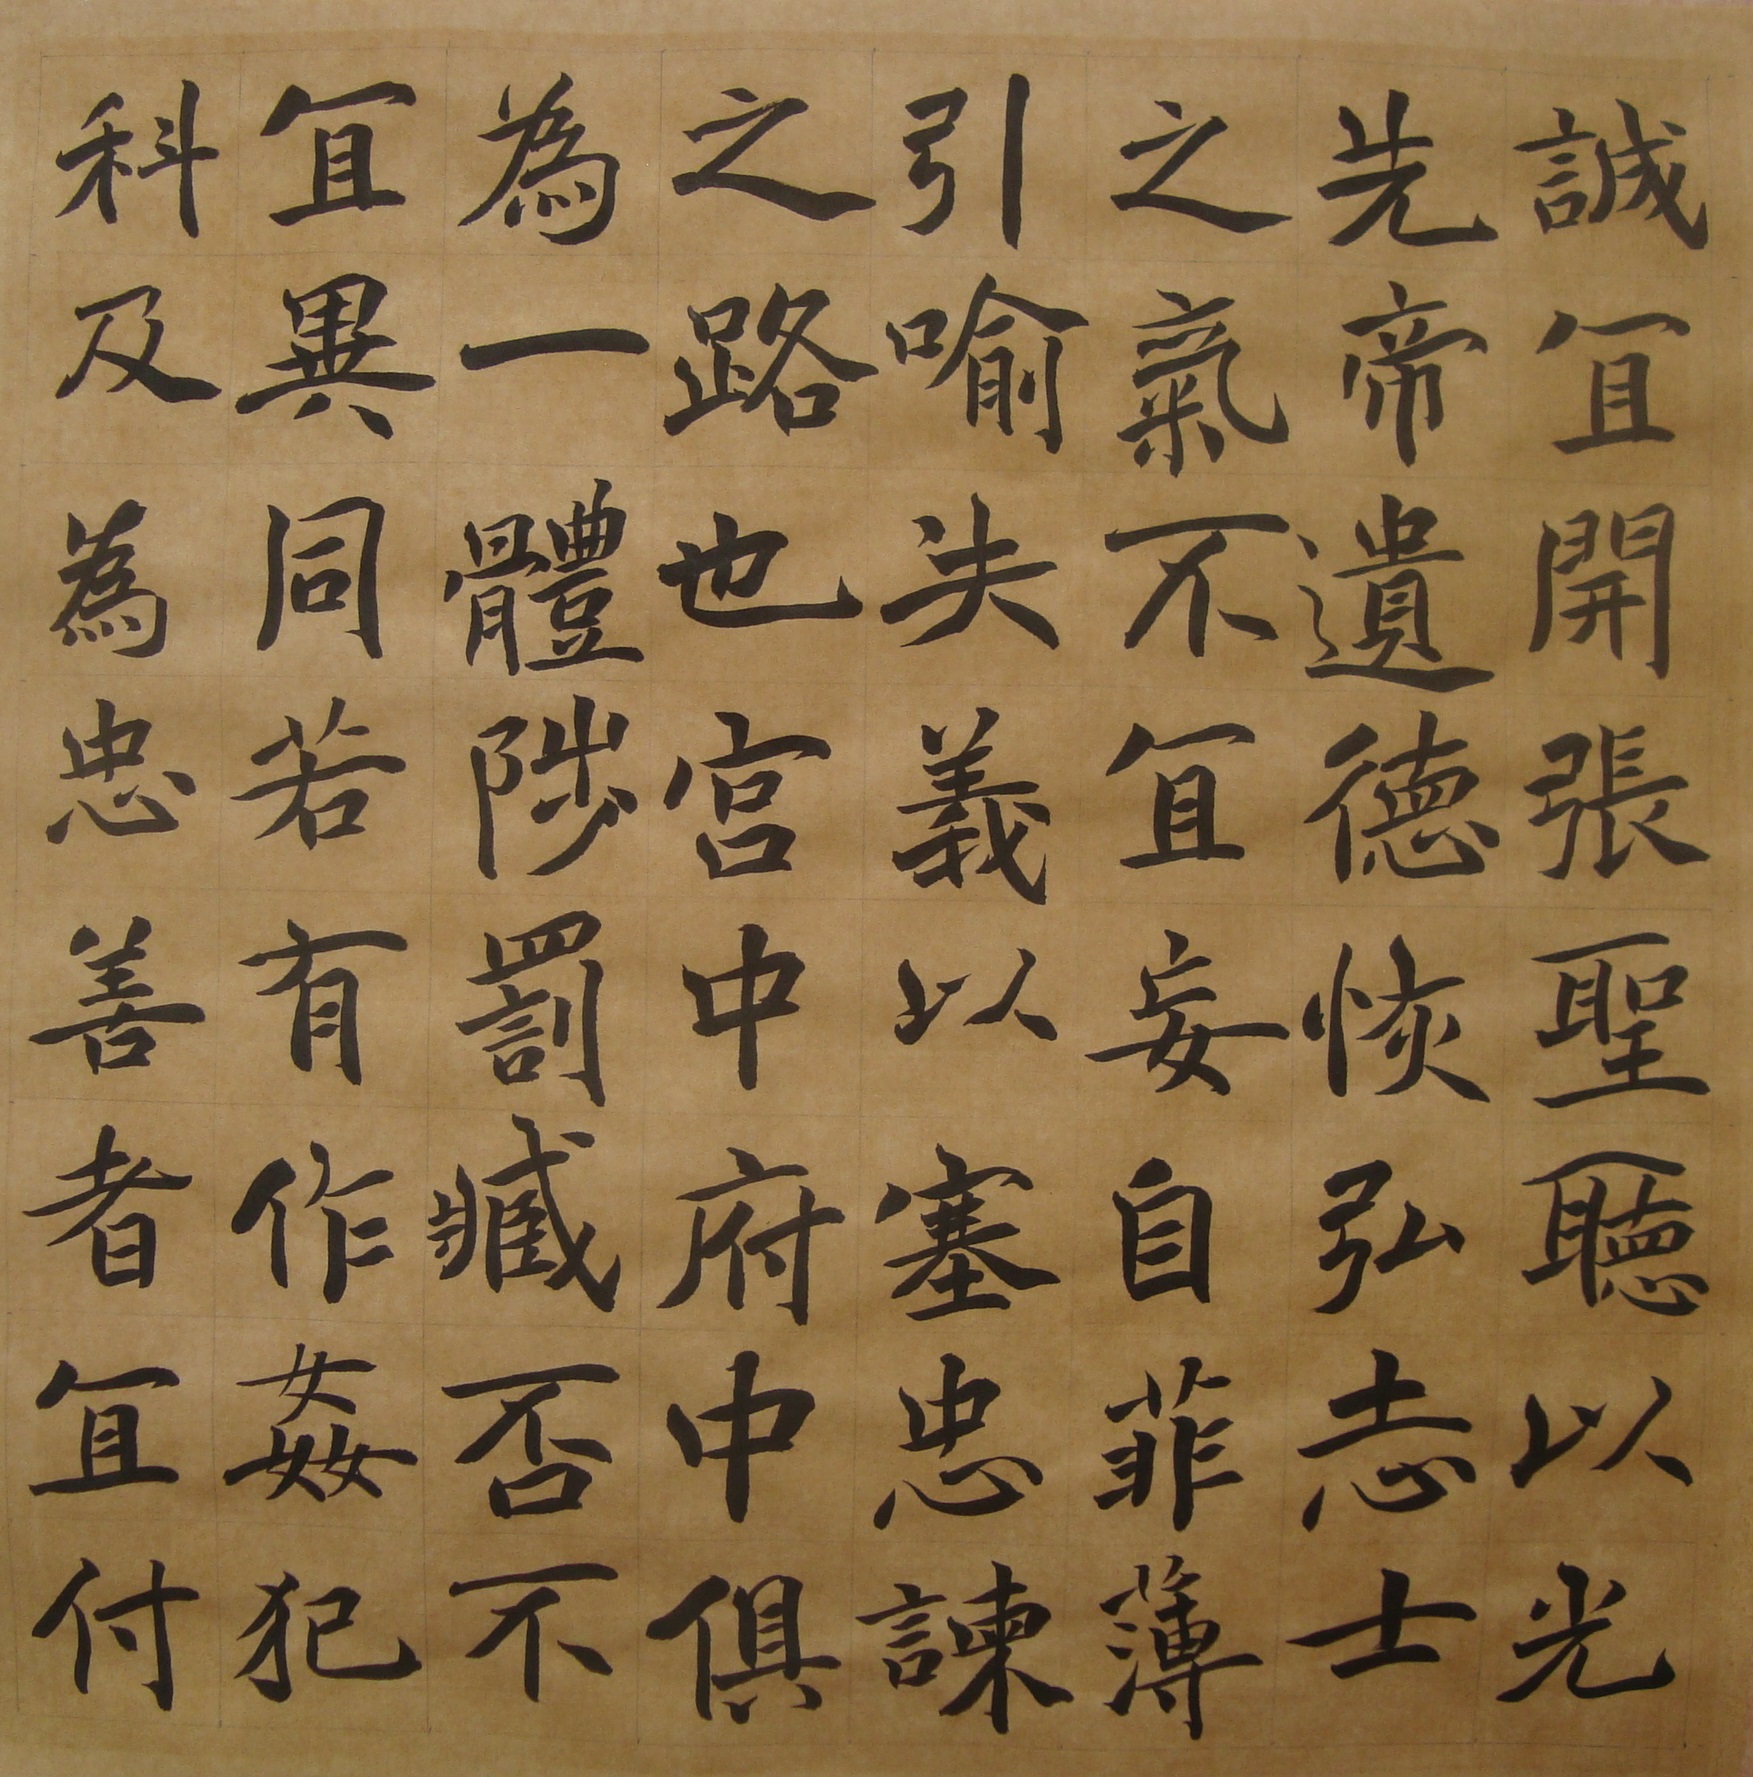 誠宜開張聖聽以光
先帝遺德恢弘志士
之氣不宜妄自菲薄
引喻失義以塞忠諫
之路也宮中府中俱
為一體陟罰臧否不
宜異同若有作姦犯
科及為忠善者宜付